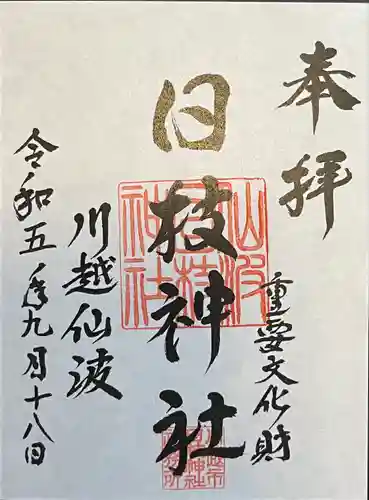 奉拝
重要文化財
日枝神社
仙波
日枝
神社
川越仙波
令和五年九月十八日